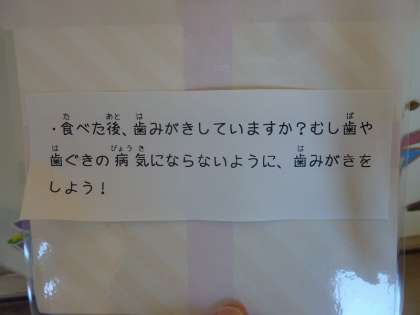 ・食べた後、歯みがきしていますか？むし歯や
歯ぐきの病気にならないように、歯みがきを
しよう！